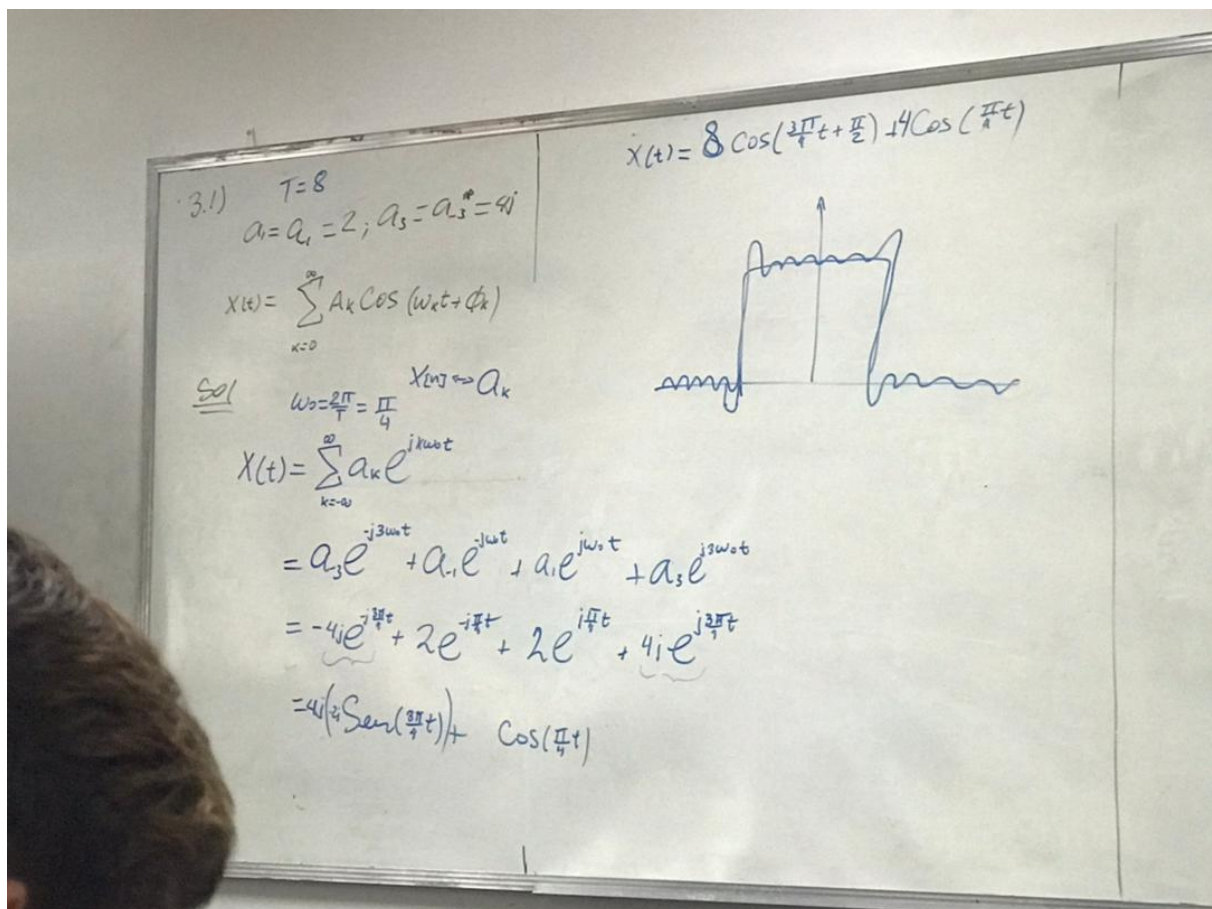 3.1) T=8
a₁=a₋₁=2; a₃=a₋₃*=4j
X(t)= ∑_{k=0}^{∞} Aₖ Cos (ωₖt+ϕₖ)
Sol
ω₀=2π/T=π/4 X[n]⇔aₖ
X(t)= ∑_{k=-∞}^{∞} aₖ e^{jkω₀t}
= a₋₃e^{-j3ω₀t} +a₋₁e^{-jω₀t} +a₁e^{jω₀t} +a₃e^{j3ω₀t}
= -4je^{-j3π/4t} + 2e^{-jπ/4t} + 2e^{jπ/4t} + 4je^{j3π/4t}
=4j(2jSen(3π/4t))+ Cos(π/4t)
X(t)= 8 Cos(3π/4t+π/2)+4Cos(π/4t)